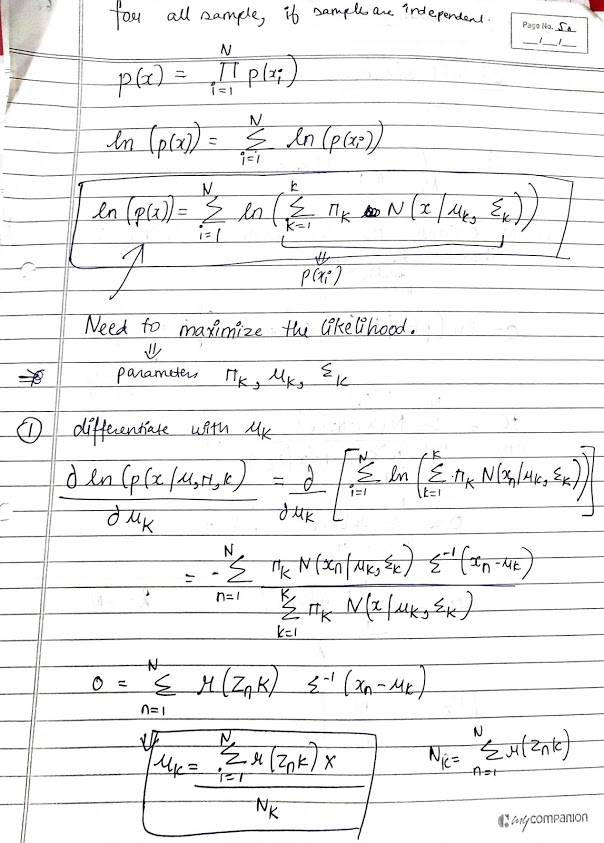 for all sample, if samples are independent.
Page No. 50
p(x) = ∏_{i=1}^{N} p(x_i)
ln (p(x)) = Σ_{i=1}^{N} ln (p(x_i))
ln (p(x)) = Σ_{i=1}^{N} ln ( Σ_{k=1}^{K} π_k N(x | μ_k, Σ_k) )
⇓
p(x_i)
Need to maximize the likelihood.
⇓
parameters π_k, μ_k, Σ_k
① differentiate with μ_k
∂ ln (p(x | μ, π, k) / ∂μ_k = ∂/∂μ_k [ Σ_{i=1}^{N} ln ( Σ_{k=1}^{K} π_k N(x_n | μ_k, Σ_k) ) ]
= - Σ_{n=1}^{N} π_k N(x_n | μ_k, Σ_k) Σ^{-1} (x_n - μ_k) / Σ_{k=1}^{K} π_k N(x | μ_k, Σ_k)
0 = Σ_{n=1}^{N} r(Z_n k) Σ^{-1} (x_n - μ_k)
⇓
μ_k = Σ_{i=1}^{N} r(Z_n k) x / N_k
N_k = Σ_{n=1}^{N} r(Z_n k)
my companion